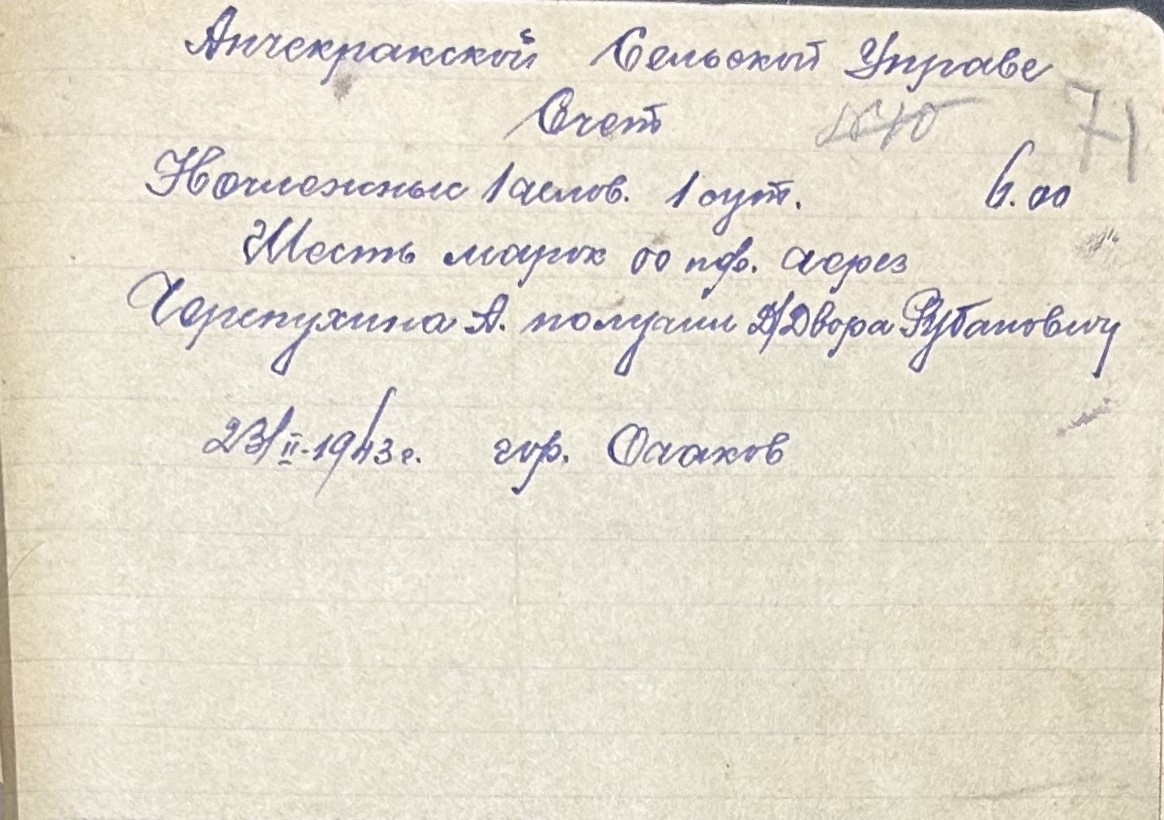 Анчекракской Сельской Управе
Счет
71
Ночлежные 1 челов. 1 сут. 6.00
Шесть марок 00 пф. через
Черепухина А. получил Д/Двора Рубанович
23/II-1943 г. гор. Очаков